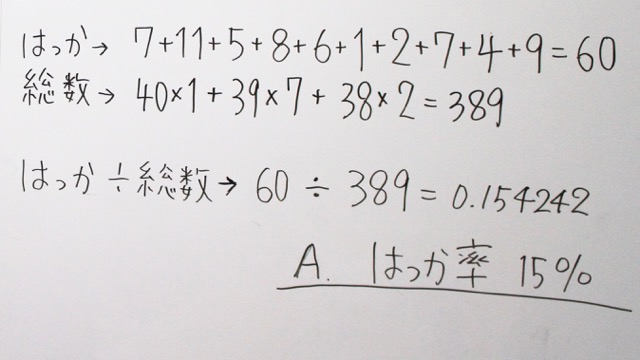 はっか→ 7+11+5+8+6+1+2+7+4+9=60
総数→ 40×1+39×7+38×2=389
はっか÷総数→ 60÷389=0.154242
A. はっか率 15%